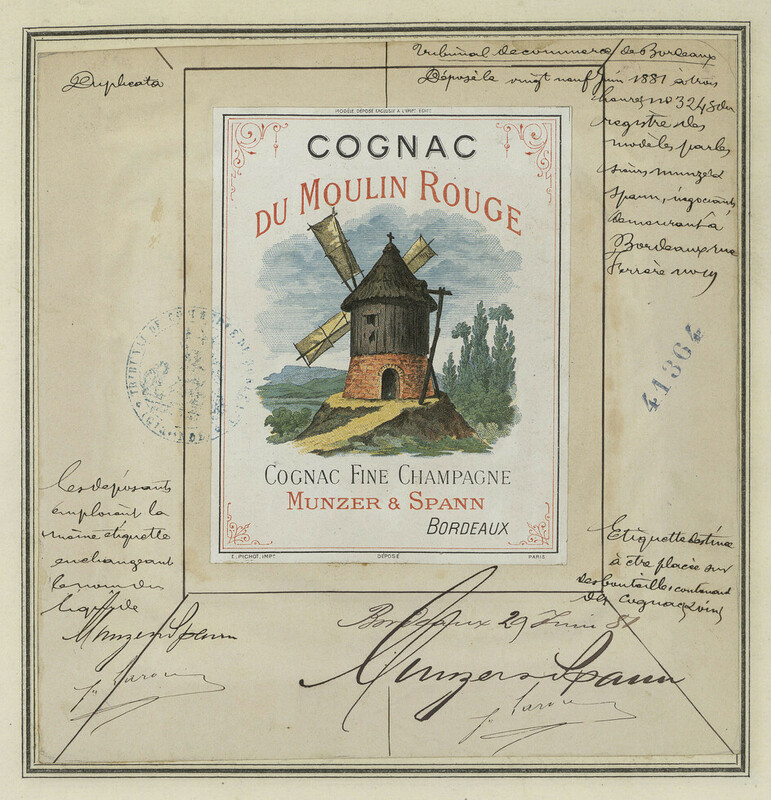 Duplicata
Tribunal de commerce de Bordeaux
Déposé le vingt neuf Juin 1881 à trois
heures no 3248 du
registre des
modèles par les
sieurs Munzer &
Spann, négociants
demeurant à
Bordeaux rue
Ferrère no 19
MODÈLE DÉPOSÉ EXCLUSIF À L'IMPR. EDIT.
COGNAC
DU MOULIN ROUGE
COGNAC FINE CHAMPAGNE
MUNZER & SPANN
BORDEAUX
E. PICHOT, IMPR. DÉPOSÉ PARIS
TRIBUNAL DE COMMERCE DE
41364
Les déposants
emploient la
même étiquette
en changeant
le nom du
liquide
Munzer & Spann
Etiquette destinée
à être placée sur
des bouteilles contenant
des cognacs
Bordeaux 29 Juin 81
Munzer & Spann